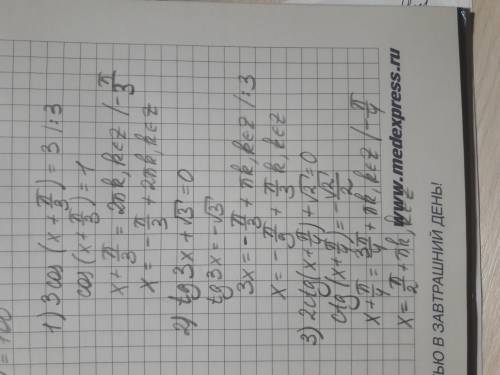 1) 3cos(x + π/3) = 3 | :3
cos(x + π/3) = 1
x + π/3 = 2πk, k∈Z | -π/3
x = -π/3 + 2πk, k∈Z
2) tg 3x + √3 = 0
tg 3x = -√3
3x = -π/3 + πk, k∈Z | :3
x = -π/9 + π/3 k, k∈Z
3) 2ctg(x + π/4) + √2 = 0
ctg(x + π/4) = -√2/2
x + π/4 = 3π/4 + πk, k∈Z | -π/4
x = π/2 + πk, k∈Z
www.medexpress.ru
В ЗАВТРАШНИЙ ДЕНЬ!